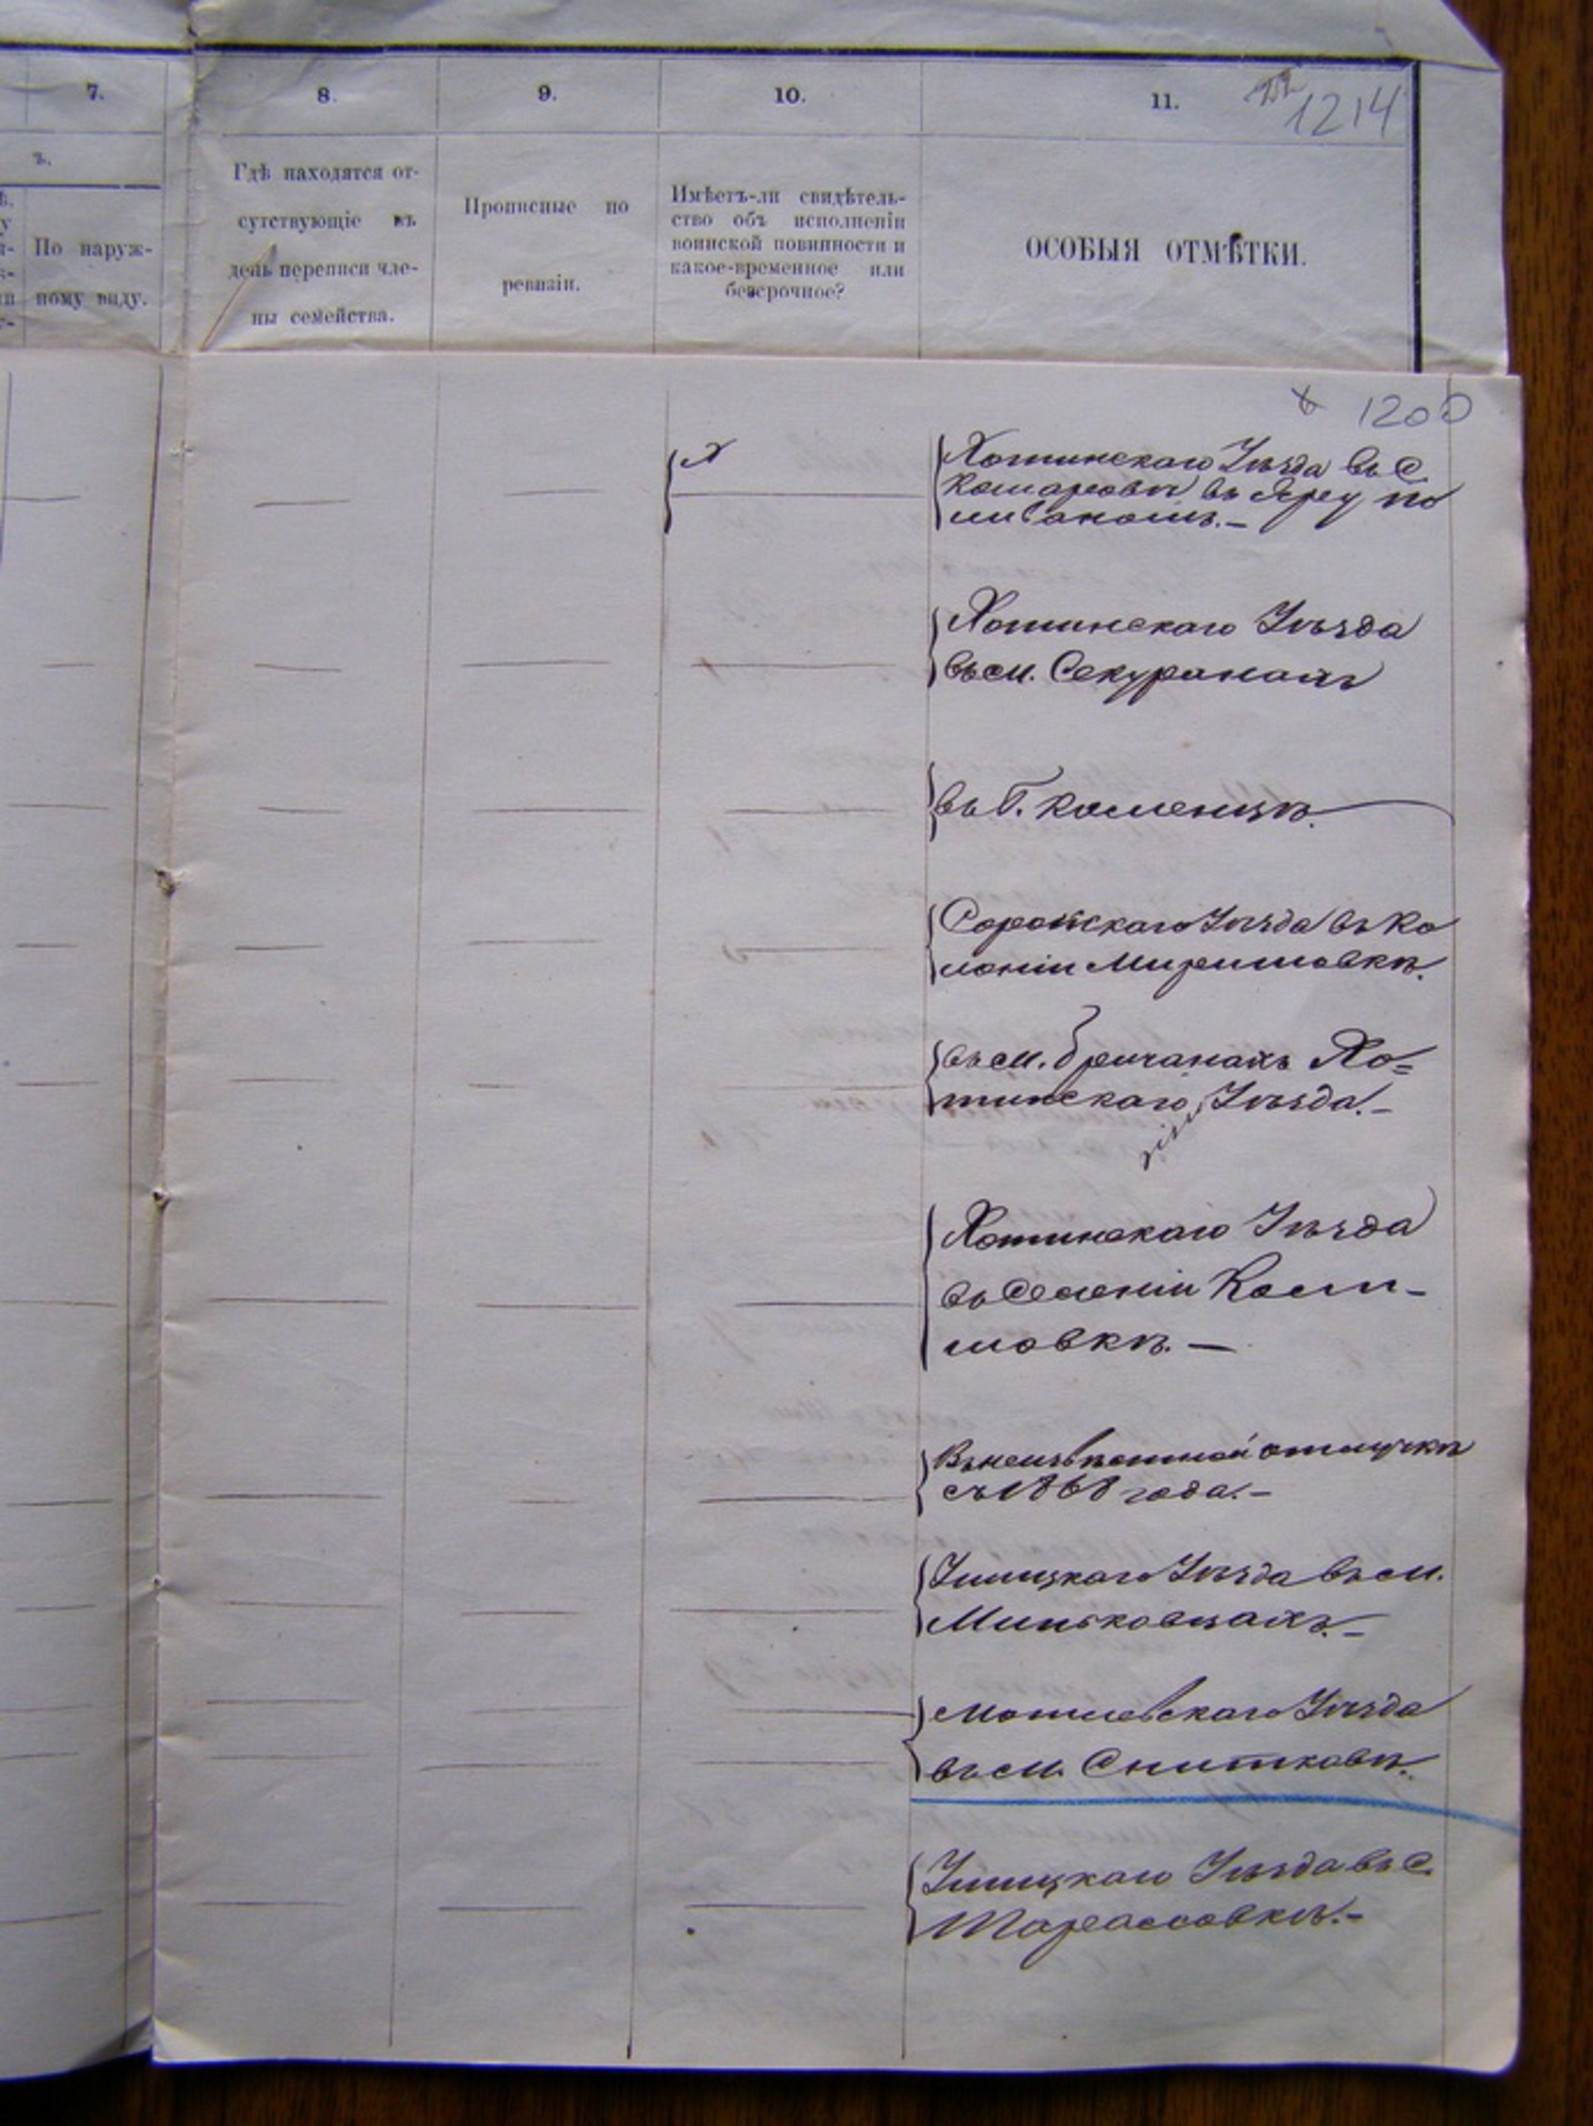 7.
8.
9.
10.
11.
1214
ъ.
По наруж-
ному виду.
Гдѣ находятся от-
сутствующіе въ
день переписи чле-
ны семейства.
Прописные по
ревизіи.
Имѣетъ-ли свидѣтель-
ство объ исполненіи
воинской повинности и
какое-временное или
безсрочное?
ОСОБЫЯ ОТМѢТКИ.
1200
Хотинскаго Уѣзда въ С.
Комаровѣ въ
Хотинскаго Уѣзда
въ м. Секуранахъ
въ Г. Каменцѣ.
Сорокскаго Уѣзда въ Ко
лоніи
въ м. Бричанахъ Хо=
тинскаго Уѣзда.-
Хотинскаго Уѣзда
въ Селеніи
Въ неизвѣстной отлучкѣ
съ 1868 года.-
Ушицкаго Уѣзда въ м.
Миньковцахъ.-
Могилевскаго Уѣзда
въ м. Снитковѣ.
Ушицкаго Уѣзда въ С.
Тарассовкѣ.-